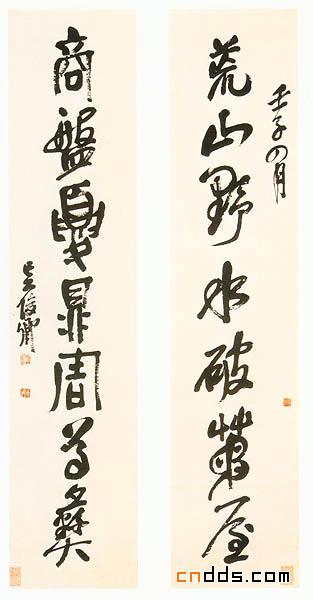 壬子四月
荒山野水破茅屋
商盤夏鼎周尊彝
吳俊卿
cndds.com